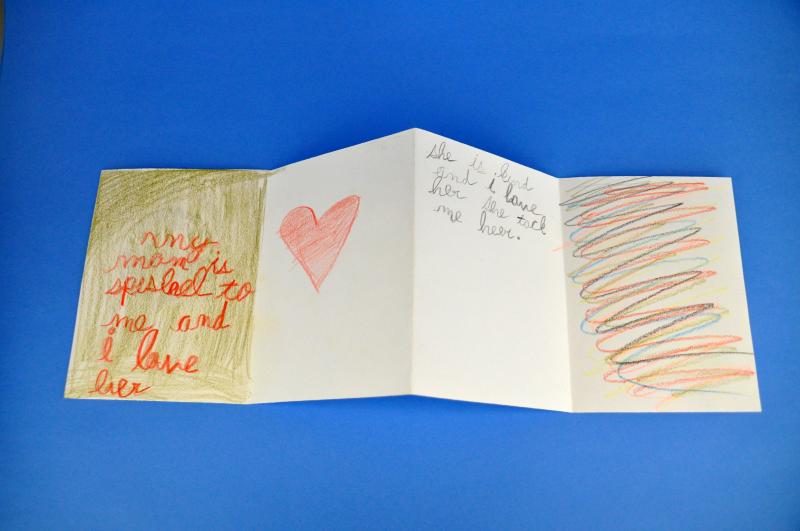 my
mom is
speshel to
me and
i love
her
she is kind
and i love
her she tock
me heer.